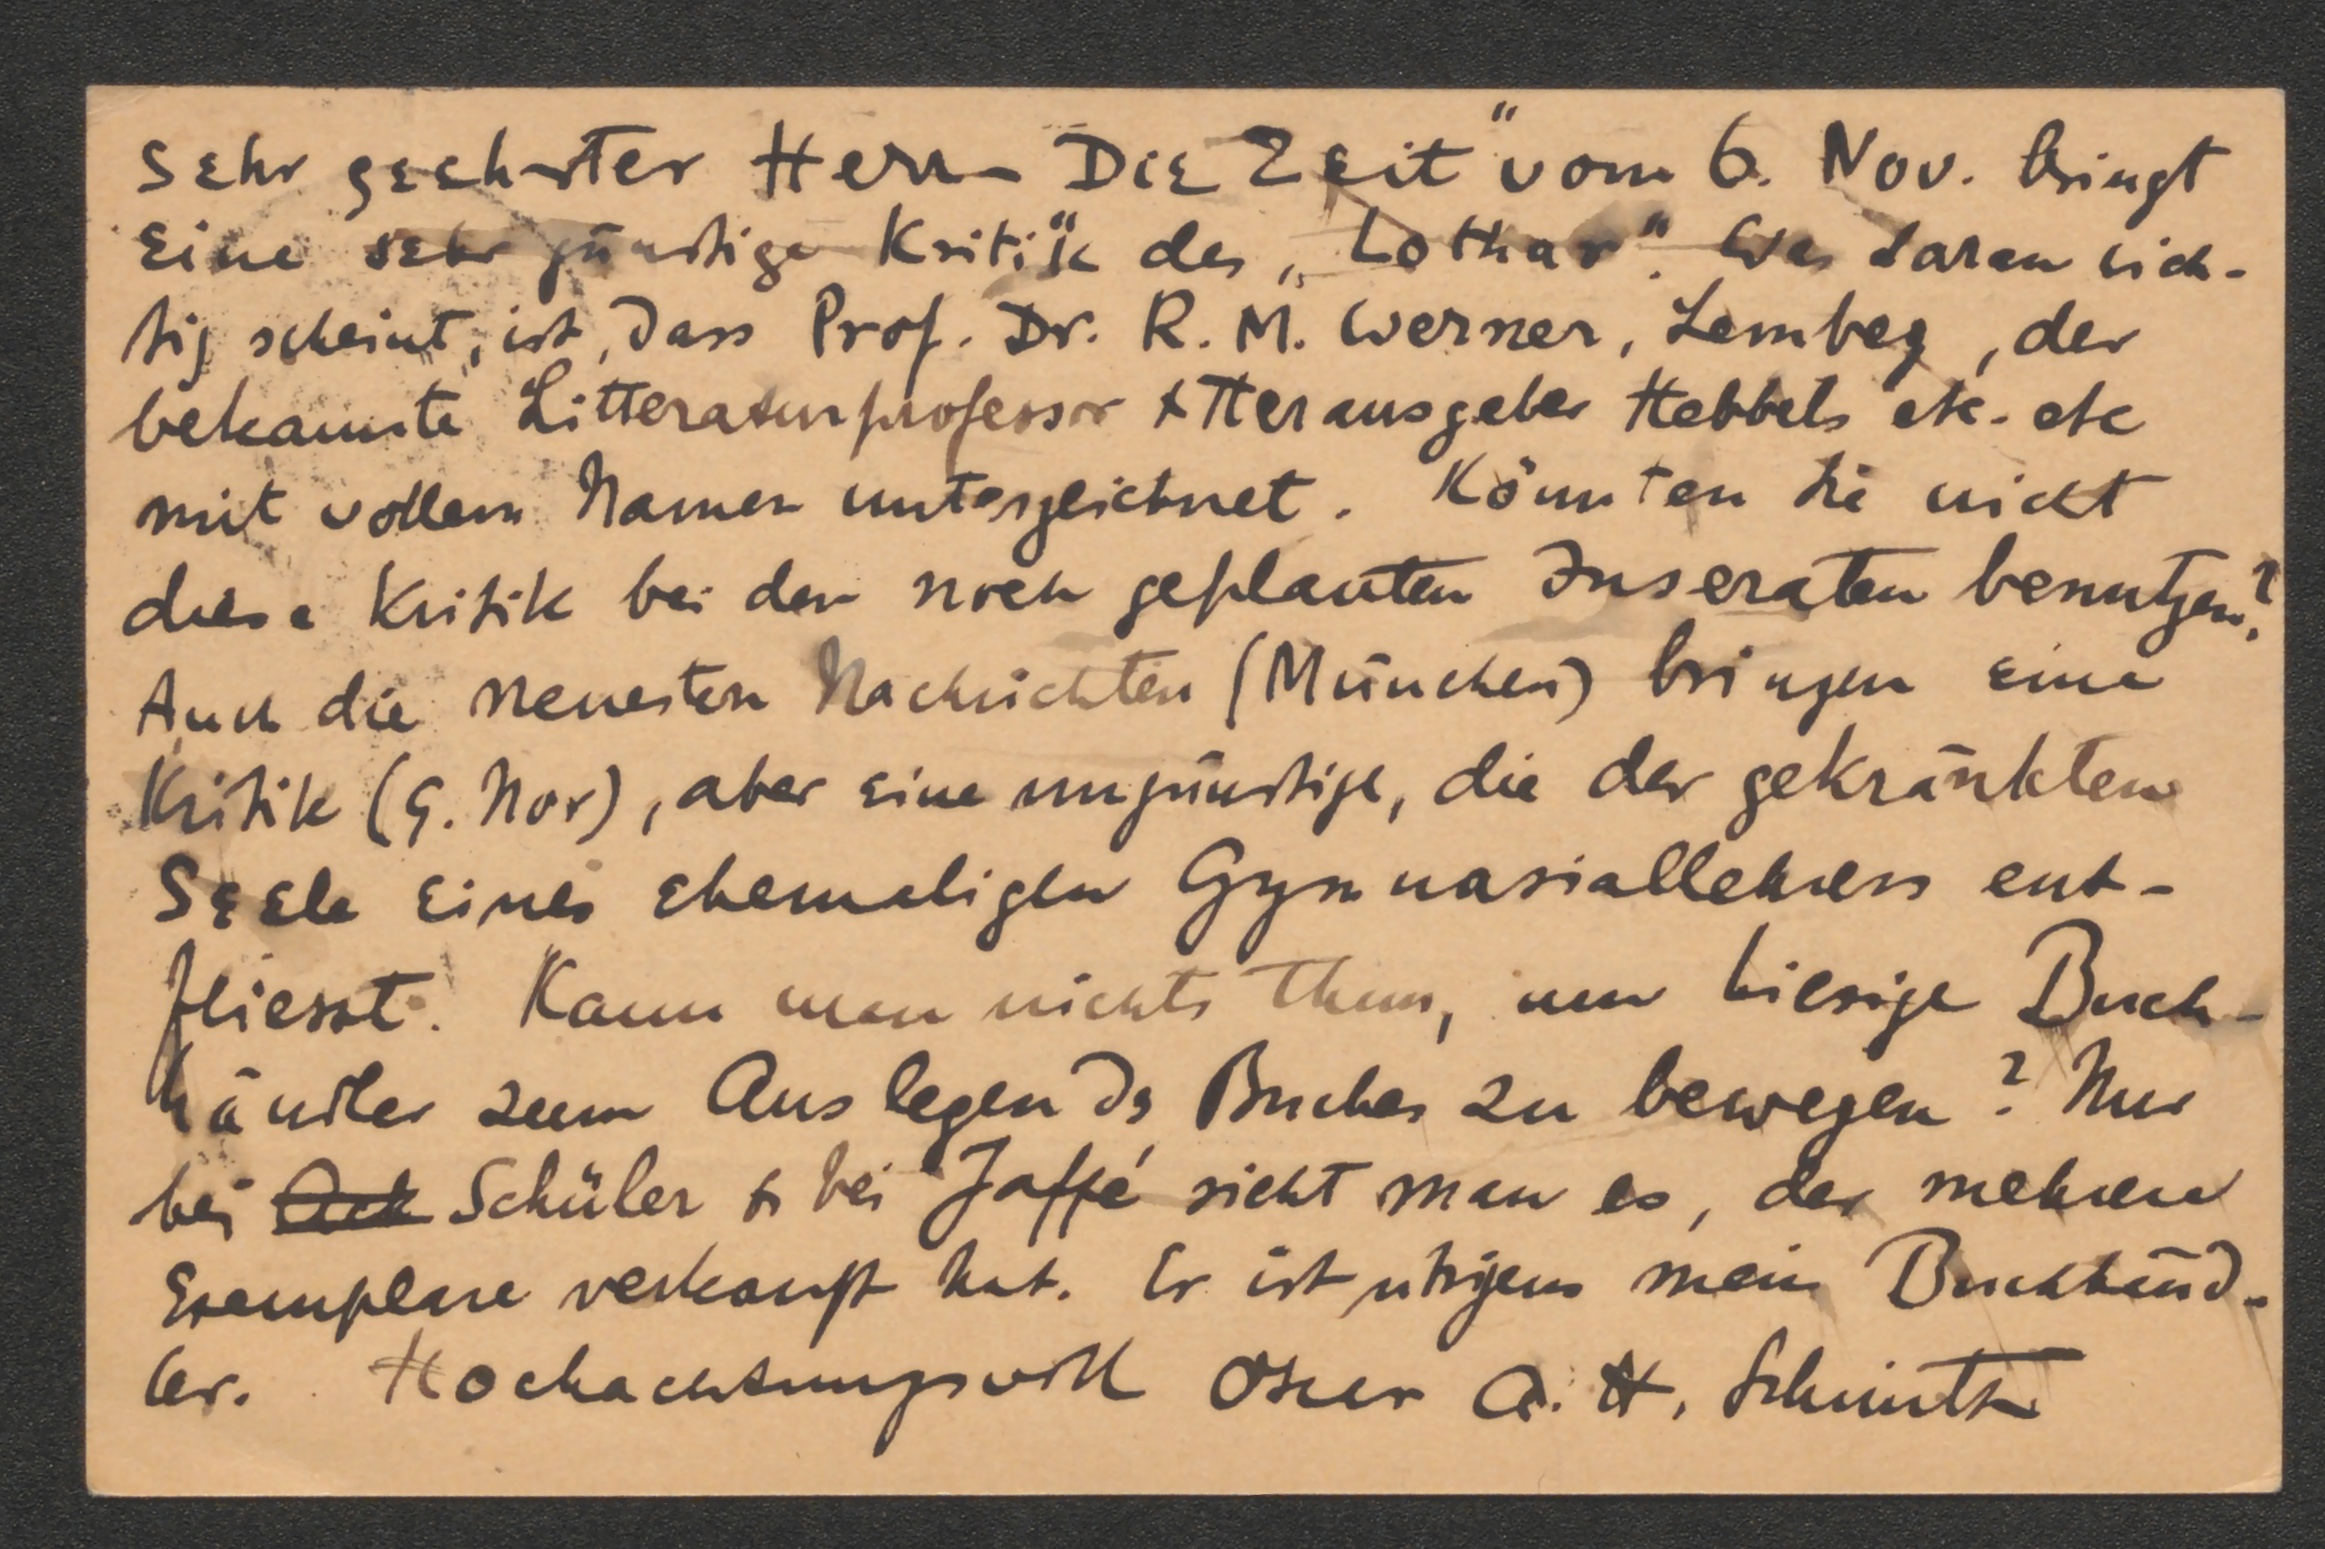 Sehr geehrter Herr Die Zeit" vom 6. Nov. bringt
eine sehr günstige Kritik des „Lothar". Was daran wich-
tig scheint, ist, dass Prof. Dr. R. M. Werner, Lemberg, der
bekannte Litteraturprofessor & Herausgeber Hebbels etc. etc
mit vollem Namen unterzeichnet. Könnten Sie nicht
diese Kritik bei den noch geplanten Inseraten benutzen?
Auch die neuesten Nachrichten (München) bringen eine
Kritik (9. Nov), aber eine ungünstige, die der gekränkten
Seele eines ehemaligen Gymnasiallehrers ent-
fliesst. Kann man nichts thun, um hiesige Buch-
händler zum Auslegen ds Buches zu bewegen? Nur
bei Ack Schüler & bei Jaffé sieht man es, der mehrere
Exemplare verkauft hat. Er ist übrigens mein Buchhänd-
ler. Hochachtungsvoll Oscar A. H. Schmitz